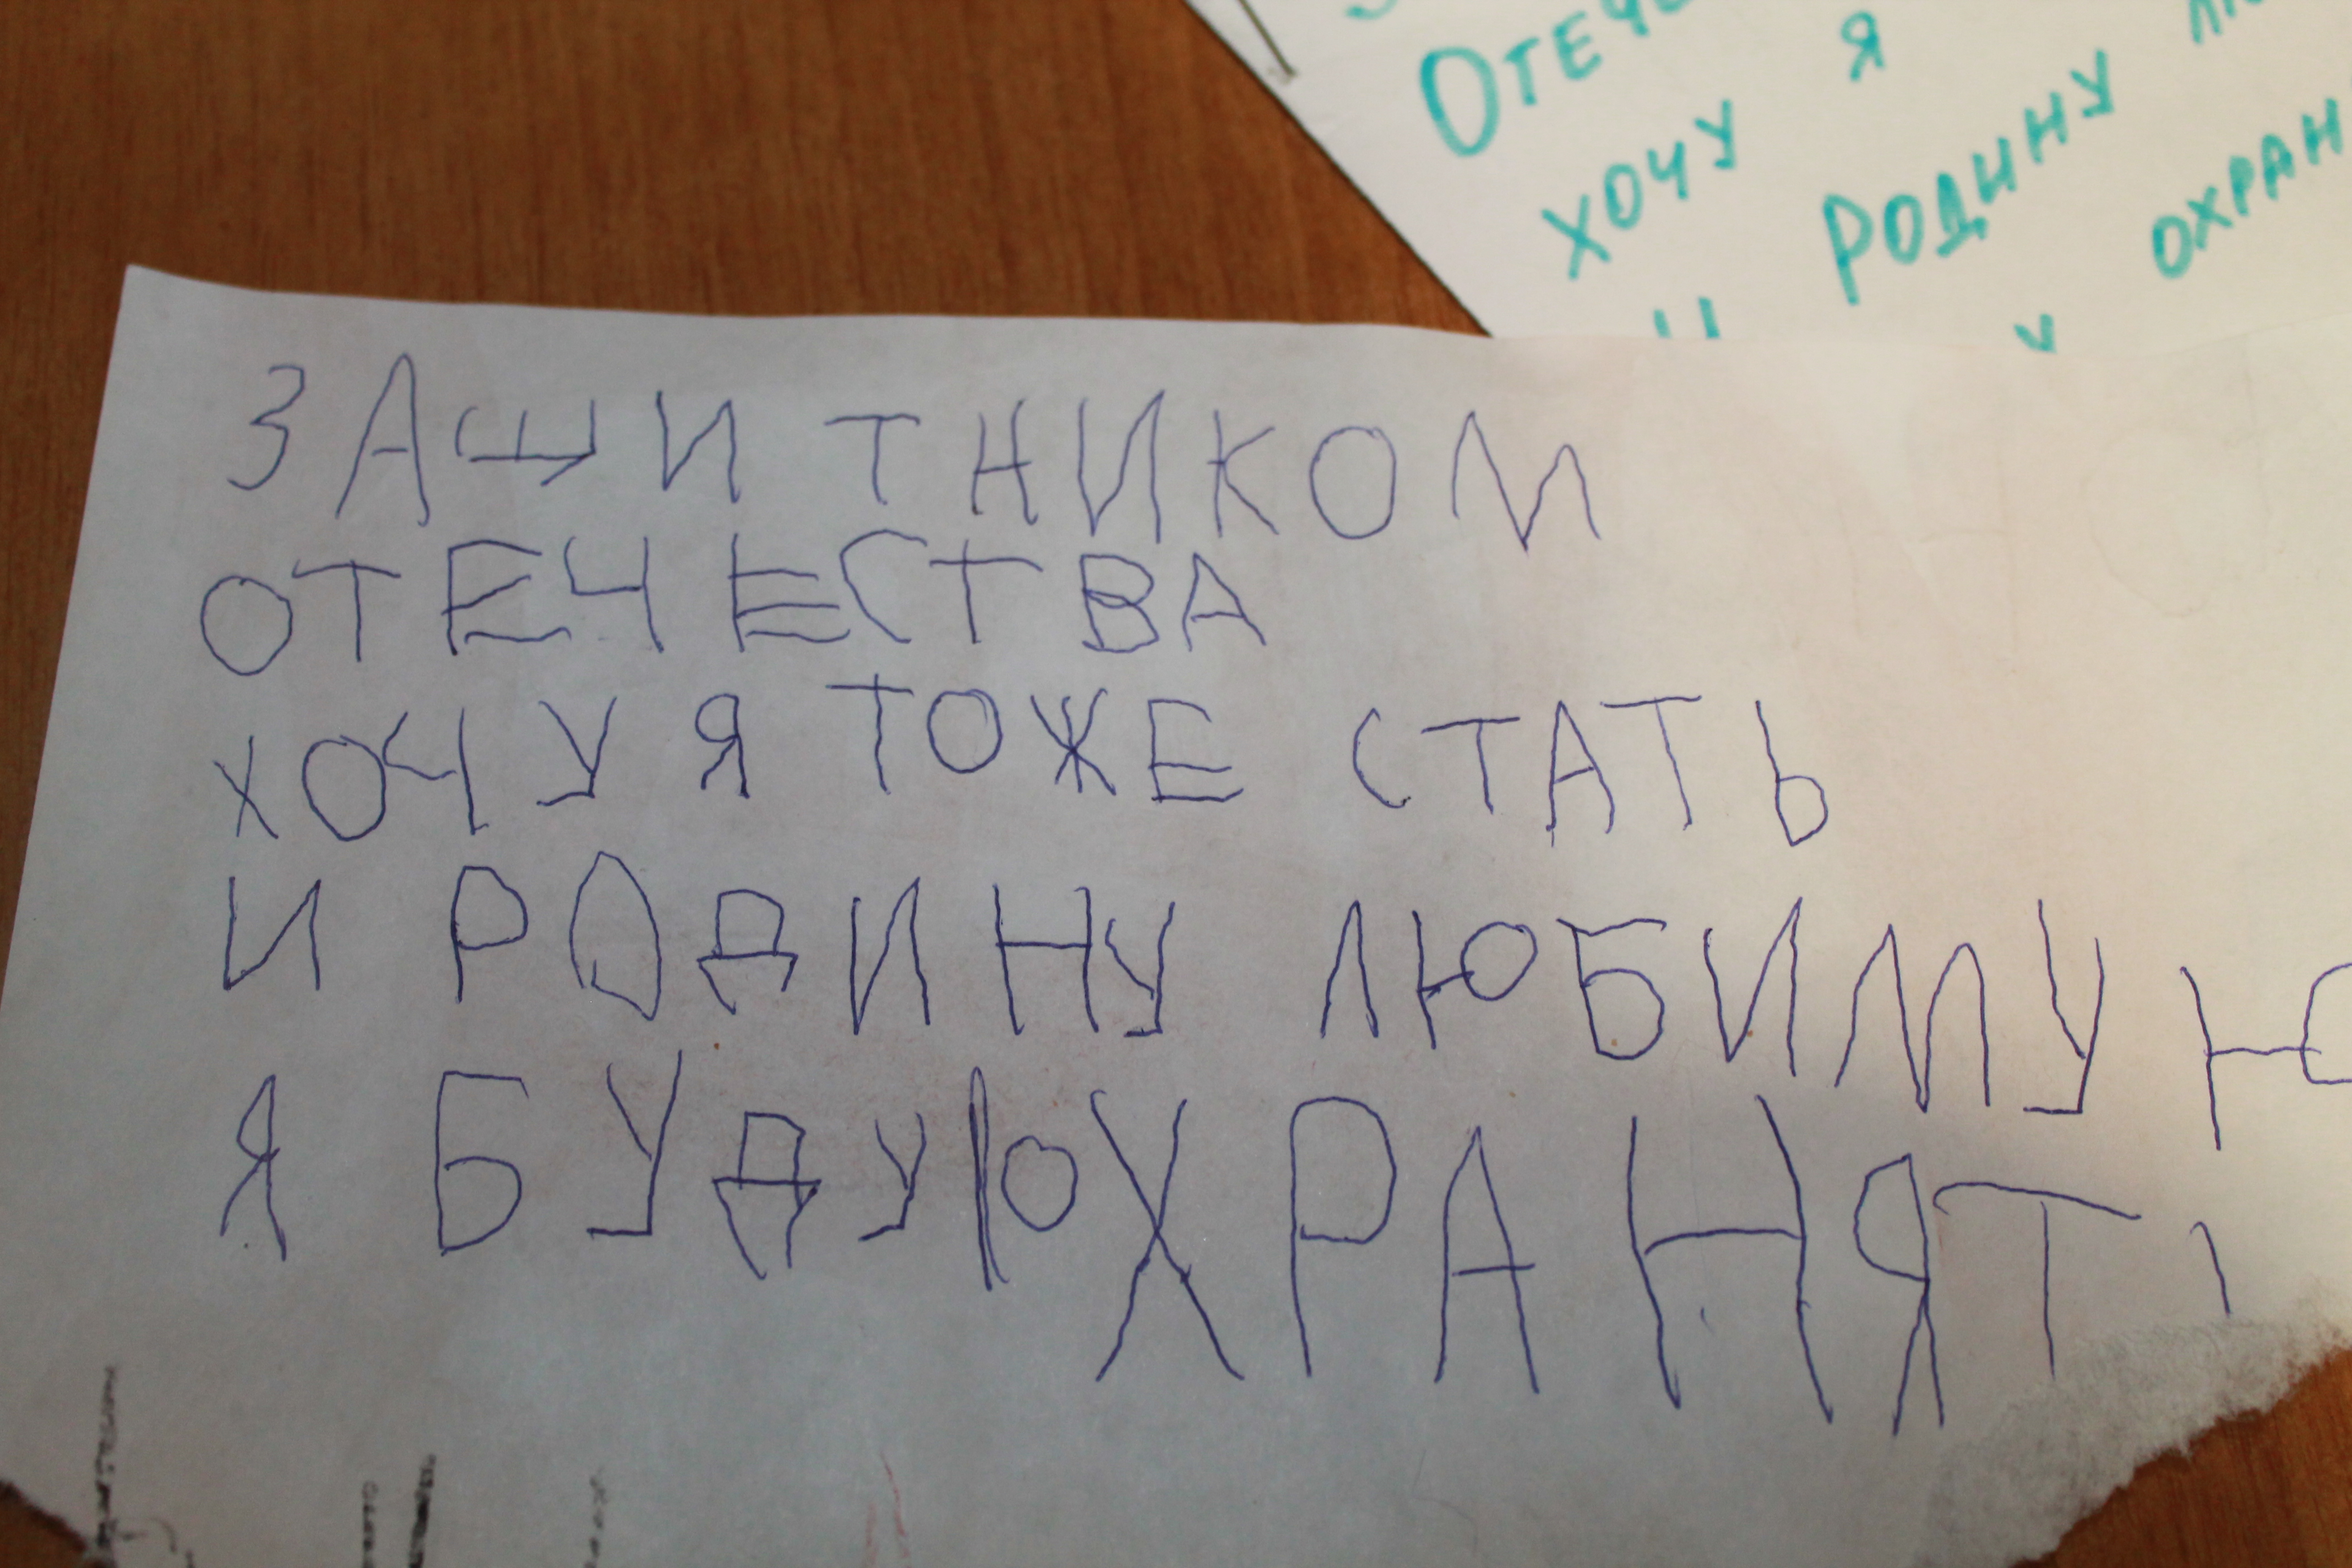 Отече
хочу я
Родину
охран
ЗАЩИТНИКОМ
ОТЕЧЕСТВА
ХОЧУ Я ТОЖЕ СТАТЬ
И РОДИНУ ЛЮБИМУЮ
Я БУДУ ЮХРАНЯТ